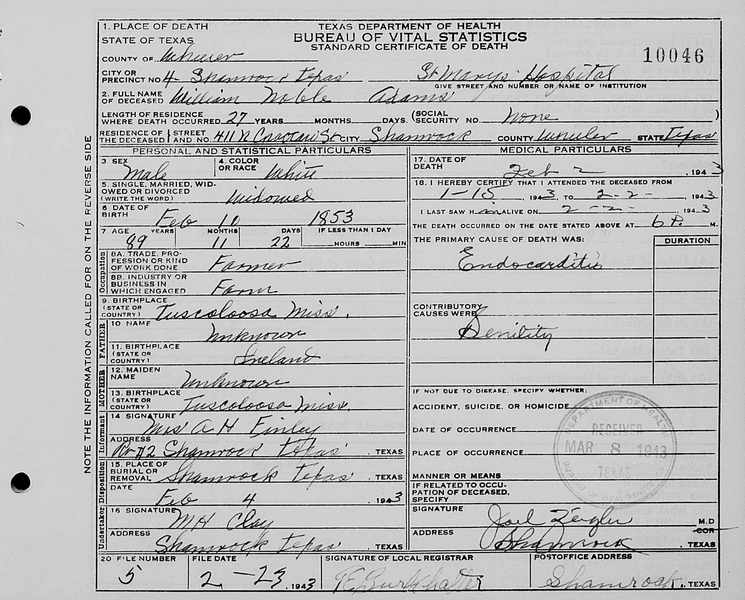 1. PLACE OF DEATH
STATE OF TEXAS
TEXAS DEPARTMENT OF HEALTH
BUREAU OF VITAL STATISTICS
STANDARD CERTIFICATE OF DEATH
COUNTY OF Wheeler
10046
CITY OR PRECINCT NO. 4 Shamrock Texas St Marys Hospital
GIVE STREET AND NUMBER OR NAME OF INSTITUTION
2. FULL NAME OF DECEASED William Noble Adams
LENGTH OF RESIDENCE WHERE DEATH OCCURRED 27 YEARS MONTHS DAYS (SOCIAL SECURITY NO. None )
RESIDENCE OF THE DECEASED STREET AND NO. 411 N Choctaw St CITY Shamrock COUNTY Wheeler STATE Texas
PERSONAL AND STATISTICAL PARTICULARS
3 SEX Male
4. COLOR OR RACE White
5. SINGLE, MARRIED, WIDOWED OR DIVORCED (WRITE THE WORD) Widowed
6 DATE OF BIRTH Feb 10 1853
7 AGE YEARS MONTHS DAYS IF LESS THAN 1 DAY
89 11 22 HOURS MIN
Occupation
8A. TRADE, PROFESSION OR KIND OF WORK DONE Farmer
8B. INDUSTRY OR BUSINESS IN WHICH ENGAGED Farm
9. BIRTHPLACE (STATE OR COUNTRY) Tuscoloosa Miss.
FATHER
10 NAME Unknown
11. BIRTHPLACE (STATE OR COUNTRY) Ireland
MOTHER
12. MAIDEN NAME Unknown
13. BIRTHPLACE (STATE OR COUNTRY) Tuscoloosa Miss.
Informant
14 SIGNATURE Mrs A H Finley
ADDRESS #2 Shamrock Texas , TEXAS
Disposition
15. PLACE OF BURIAL OR REMOVAL Shamrock Texas , TEXAS
DATE Feb 4 , 1943
Undertaker
16 SIGNATURE M H Clay
ADDRESS Shamrock Texas , TEXAS
MEDICAL PARTICULARS
17. DATE OF DEATH Feb 2 , 1943
18. I HEREBY CERTIFY THAT I ATTENDED THE DECEASED FROM
1-15 1943 TO 2-2- 1943
I LAST SAW H im ALIVE ON 2-2- 1943
THE DEATH OCCURRED ON THE DATE STATED ABOVE AT 6 P. M.
THE PRIMARY CAUSE OF DEATH WAS: DURATION
Endocarditis
CONTRIBUTORY CAUSES WERE
Senility
IF NOT DUE TO DISEASE, SPECIFY WHETHER:
ACCIDENT, SUICIDE, OR HOMICIDE
DATE OF OCCURRENCE
PLACE OF OCCURRENCE
MANNER OR MEANS
IF RELATED TO OCCUPATION OF DECEASED, SPECIFY
SIGNATURE Joel Zeigler M.D
ADDRESS Shamrock COR , TEXAS
DEPARTMENT OF HEALTH
RECEIVED
MAR 8 1943
TEXAS
20 FILE NUMBER FILE DATE SIGNATURE OF LOCAL REGISTRAR POSTOFFICE ADDRESS
5 2-23 , 1943 Burkhalter Shamrock , TEXAS
NOTE THE INFORMATION CALLED FOR ON THE REVERSE SIDE